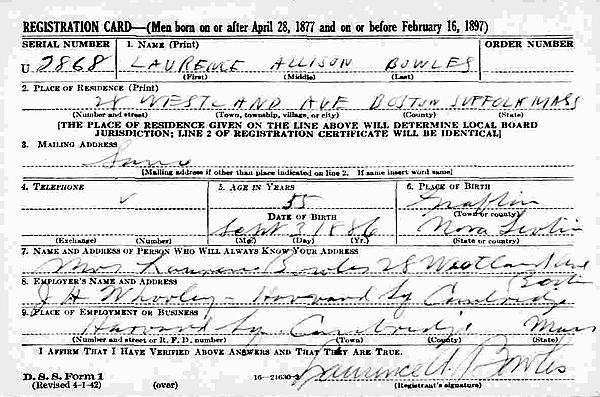 REGISTRATION CARD—(Men born on or after April 28, 1877 and on or before February 16, 1897)
SERIAL NUMBER 1. NAME (Print) ORDER NUMBER
U 2868 LAURENCE ALLISON BOWLES
(First) (Middle) (Last)
2. PLACE OF RESIDENCE (Print)
28 WESTLAND AVE BOSTON SUFFOLK MASS
(Number and street) (Town, township, village, or city) (County) (State)
[THE PLACE OF RESIDENCE GIVEN ON THE LINE ABOVE WILL DETERMINE LOCAL BOARD
JURISDICTION; LINE 2 OF REGISTRATION CERTIFICATE WILL BE IDENTICAL]
3. MAILING ADDRESS
Same
[Mailing address if other than place indicated on line 2. If same insert word same]
4. TELEPHONE 5. AGE IN YEARS 6. PLACE OF BIRTH
55 Grafton
DATE OF BIRTH (Town or county)
Sept 3 1886 Nova Scotia
(Exchange) (Number) (Mo.) (Day) (Yr.) (State or country)
7. NAME AND ADDRESS OF PERSON WHO WILL ALWAYS KNOW YOUR ADDRESS
Mrs Laurence Bowles 28 Westland Ave
8. EMPLOYER'S NAME AND ADDRESS
J H Harvard Sq Cambridge
9. PLACE OF EMPLOYMENT OR BUSINESS
Harvard Sq. Cambridge Mass
(Number and street or R. F. D. number) (Town) (County) (State)
I AFFIRM THAT I HAVE VERIFIED ABOVE ANSWERS AND THAT THEY ARE TRUE.
D. S. S. Form 1 Laurence A. Bowles
(Revised 4-1-42) (over) 16—21630-2 (Registrant's signature)